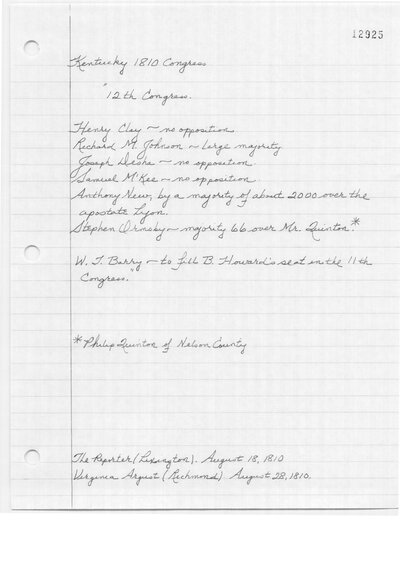 12925
Kentucky 1810 Congress
"12th Congress.
Henry Clay - no opposition
Richard M. Johnson - large majority
Joseph Desha - no opposition.
Samuel McKee - no opposition
Anthony New, by a majority of about 2000 over the
apostate Lyon.
Stephen Ormsby - majority 66 over Mr. Quinton.*
W. T. Barry - to fill B. Howard's seat in the 11th
Congress."
*Philip Quinton of Nelson County
The Reporter (Lexington). August 18, 1810
Virginia Argus (Richmond) August 28, 1810.